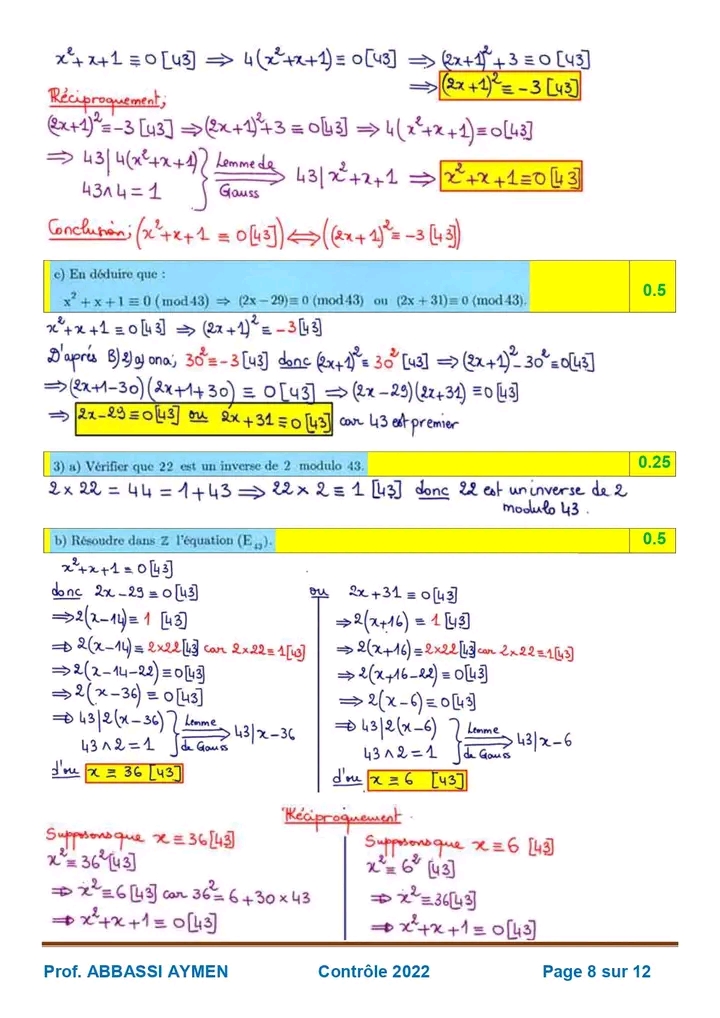 x²+x+1 ≡ 0 [43] ⟹ 4(x²+x+1) ≡ 0[43] ⟹ (2x+1)²+3 ≡ 0 [43]
⟹ (2x+1)² ≡ -3 [43]
Réciproquement;
(2x+1)² ≡ -3 [43] ⟹ (2x+1)²+3 ≡ 0[43] ⟹ 4(x²+x+1) ≡ 0[43]
⟹ 43 | 4(x²+x+1)
43∧4 = 1
} Lemme de Gauss ⟹ 43 | x²+x+1 ⟹ x²+x+1 ≡ 0[43]
Conclusion; (x²+x+1 ≡ 0[43]) ⟺ ((2x+1)² ≡ -3 [43])
c) En déduire que :
x² + x + 1 ≡ 0 (mod 43) ⇒ (2x − 29) ≡ 0 (mod 43) ou (2x + 31) ≡ 0 (mod 43). 0.5
x²+x+1 ≡ 0[43] ⟹ (2x+1)² ≡ -3[43]
D'aprés B)2)a) ona; 30² ≡ -3 [43] donc (2x+1)² ≡ 30² [43] ⟹ (2x+1)² - 30² ≡ 0[43]
⟹ (2x+1-30)(2x+1+30) ≡ 0[43] ⟹ (2x-29)(2x+31) ≡ 0[43]
⟹ 2x-29 ≡ 0[43] ou 2x+31 ≡ 0[43] car 43 est premier
3) a) Vérifier que 22 est un inverse de 2 modulo 43. 0.25
2 × 22 = 44 = 1 + 43 ⟹ 22 × 2 ≡ 1 [43] donc 22 est un inverse de 2
modulo 43.
b) Résoudre dans ℤ l'équation (E₄₃). 0.5
x²+x+1 ≡ 0[43]
donc 2x-29 ≡ 0[43]
⟹ 2(x-14) ≡ 1 [43]
⟹ 2(x-14) ≡ 2×22[43] car 2×22 ≡ 1[43]
⟹ 2(x-14-22) ≡ 0[43]
⟹ 2(x-36) ≡ 0[43]
⟹ 43 | 2(x-36)
43∧2 = 1
} Lemme de Gauss ⟹ 43 | x-36
d'ou x ≡ 36 [43]
ou 2x+31 ≡ 0[43]
⟹ 2(x+16) ≡ 1[43]
⟹ 2(x+16) ≡ 2×22[43] car 2×22 ≡ 1[43]
⟹ 2(x+16-22) ≡ 0[43]
⟹ 2(x-6) ≡ 0[43]
⟹ 43 | 2(x-6)
43∧2 = 1
} Lemme de Gauss ⟹ 43 | x-6
d'ou x ≡ 6 [43]
Réciproquement
Supposons que x ≡ 36[43]
x² ≡ 36²[43]
⟹ x² ≡ 6[43] car 36² = 6+30×43
⟹ x²+x+1 ≡ 0[43]
Supposons que x ≡ 6 [43]
x² ≡ 6² [43]
⟹ x² ≡ 36[43]
⟹ x²+x+1 ≡ 0[43]
Prof. ABBASSI AYMEN Contrôle 2022 Page 8 sur 12